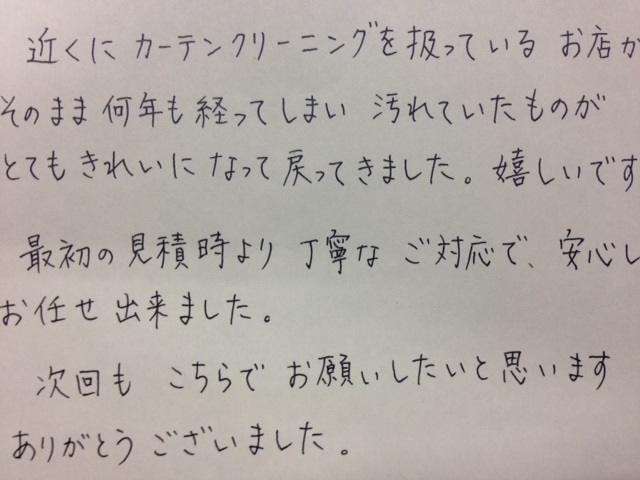 近くに カーテンクリーニングを 扱っている お店が
そのまま 何年も 経ってしまい 汚れていたものが
とてもきれいに なって 戻ってきました。嬉しいです
最初の見積時より 丁寧な ご対応で、安心し
お任せ 出来ました。
次回も こちらで お願いしたいと思います
ありがとう ございました。